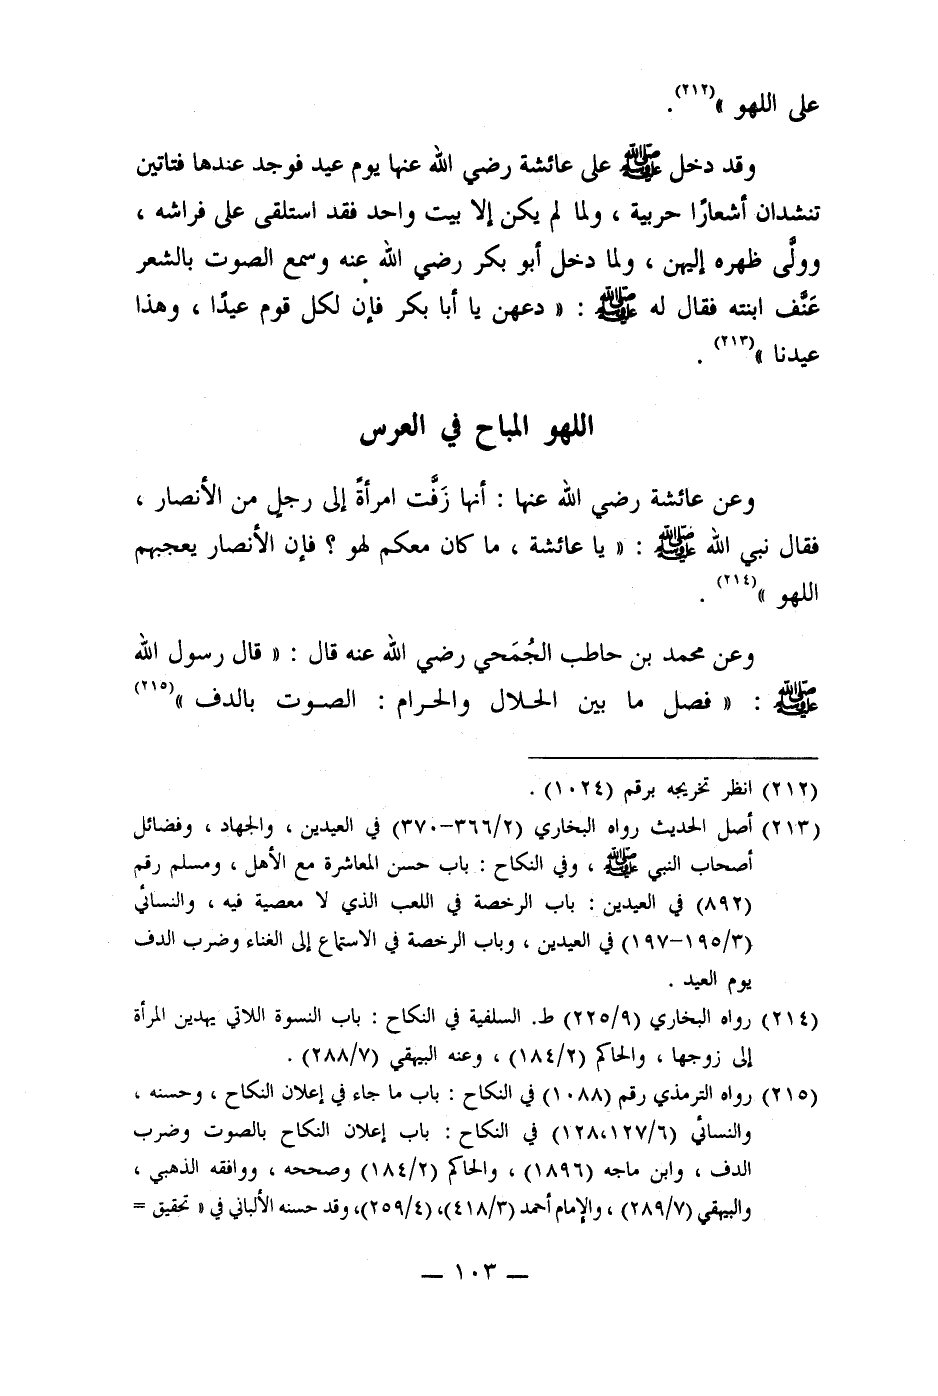 على اللهو »(٢١٢) .
وقد دخل ﷺ على عائشة رضي الله عنها يوم عيد فوجد عندها فتاتين
تنشدان أشعارًا حربية ، ولما لم يكن إلا بيت واحد فقد استلقى على فراشه ،
وولَّى ظهره إليهن ، ولما دخل أبو بكر رضي الله عنه وسمع الصوت بالشعر
عَنَّف ابنته فقال له ﷺ : « دعهن يا أبا بكر فإن لكل قوم عيدًا ، وهذا
عيدنا »(٢١٣) .
اللهو المباح في العرس
وعن عائشة رضي الله عنها : أنها زَفَّت امرأةً إلى رجلٍ من الأنصار ،
فقال نبي الله ﷺ : « يا عائشة ، ما كان معكم لهو ؟ فإن الأنصار يعجبهم
اللهو »(٢١٤) .
وعن محمد بن حاطب الجُمَحي رضي الله عنه قال : « قال رسول الله
ﷺ : « فصل ما بين الحلال والحرام : الصوت بالدف »(٢١٥)
(٢١٢) انظر تخريجه برقم (١٠٢٤) .
(٢١٣) أصل الحديث رواه البخاري (٣٦٦/٢-٣٧٠) في العيدين ، والجهاد ، وفضائل
أصحاب النبي ﷺ ، وفي النكاح : باب حسن المعاشرة مع الأهل ، ومسلم رقم
(٨٩٢) في العيدين : باب الرخصة في اللعب الذي لا معصية فيه ، والنسائي
(١٩٥/٣-١٩٧) في العيدين ، وباب الرخصة في الاستماع إلى الغناء وضرب الدف
يوم العيد .
(٢١٤) رواه البخاري (٢٢٥/٩) ط. السلفية في النكاح : باب النسوة اللاتي يهدين المرأة
إلى زوجها ، والحاكم (١٨٤/٢) ، وعنه البيهقي (٢٨٨/٧) .
(٢١٥) رواه الترمذي رقم (١٠٨٨) في النكاح : باب ما جاء في إعلان النكاح ، وحسنه ،
والنسائي (١٢٧/٦،١٢٨) في النكاح : باب إعلان النكاح بالصوت وضرب
الدف ، وابن ماجه (١٨٩٦) ، والحاكم (١٨٤/٢) وصححه ، ووافقه الذهبي ،
والبيهقي (٢٨٩/٧) ، والإمام أحمد (٤١٨/٣)، (٢٥٩/٤)، وقد حسنه الألباني في « تحقيق =
— ١٠٣ —